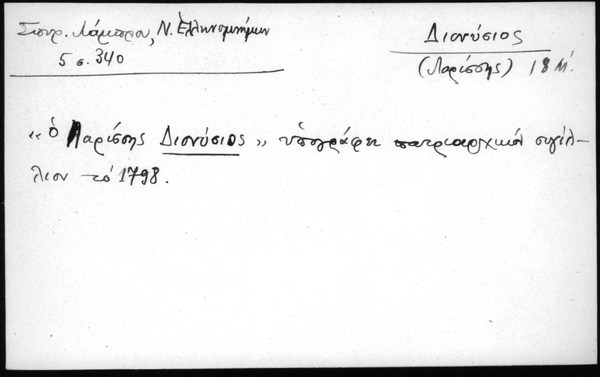 Σπυρ. Λάμπρου, Ν. Ἑλληνομνήμων
5 σ. 340
Διονύσιος
(Λαρίσσης) 18 Μ.
«ὁ Λαρίσσης Διονύσιος» ὑπογράφει πατριαρχικόν σιγίλ-
λιον τό 1798.